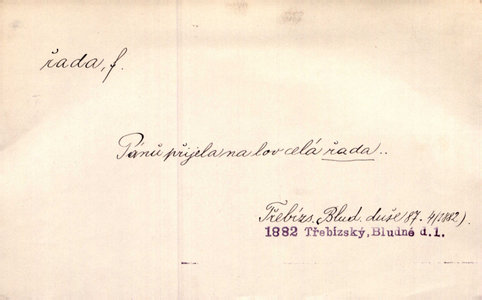 řada, f.
Pánů přijela na lov celá řada..
Třebízs. Blud. duše 87. 4 (1882).
1882 Třebízský, Bludné d.1.